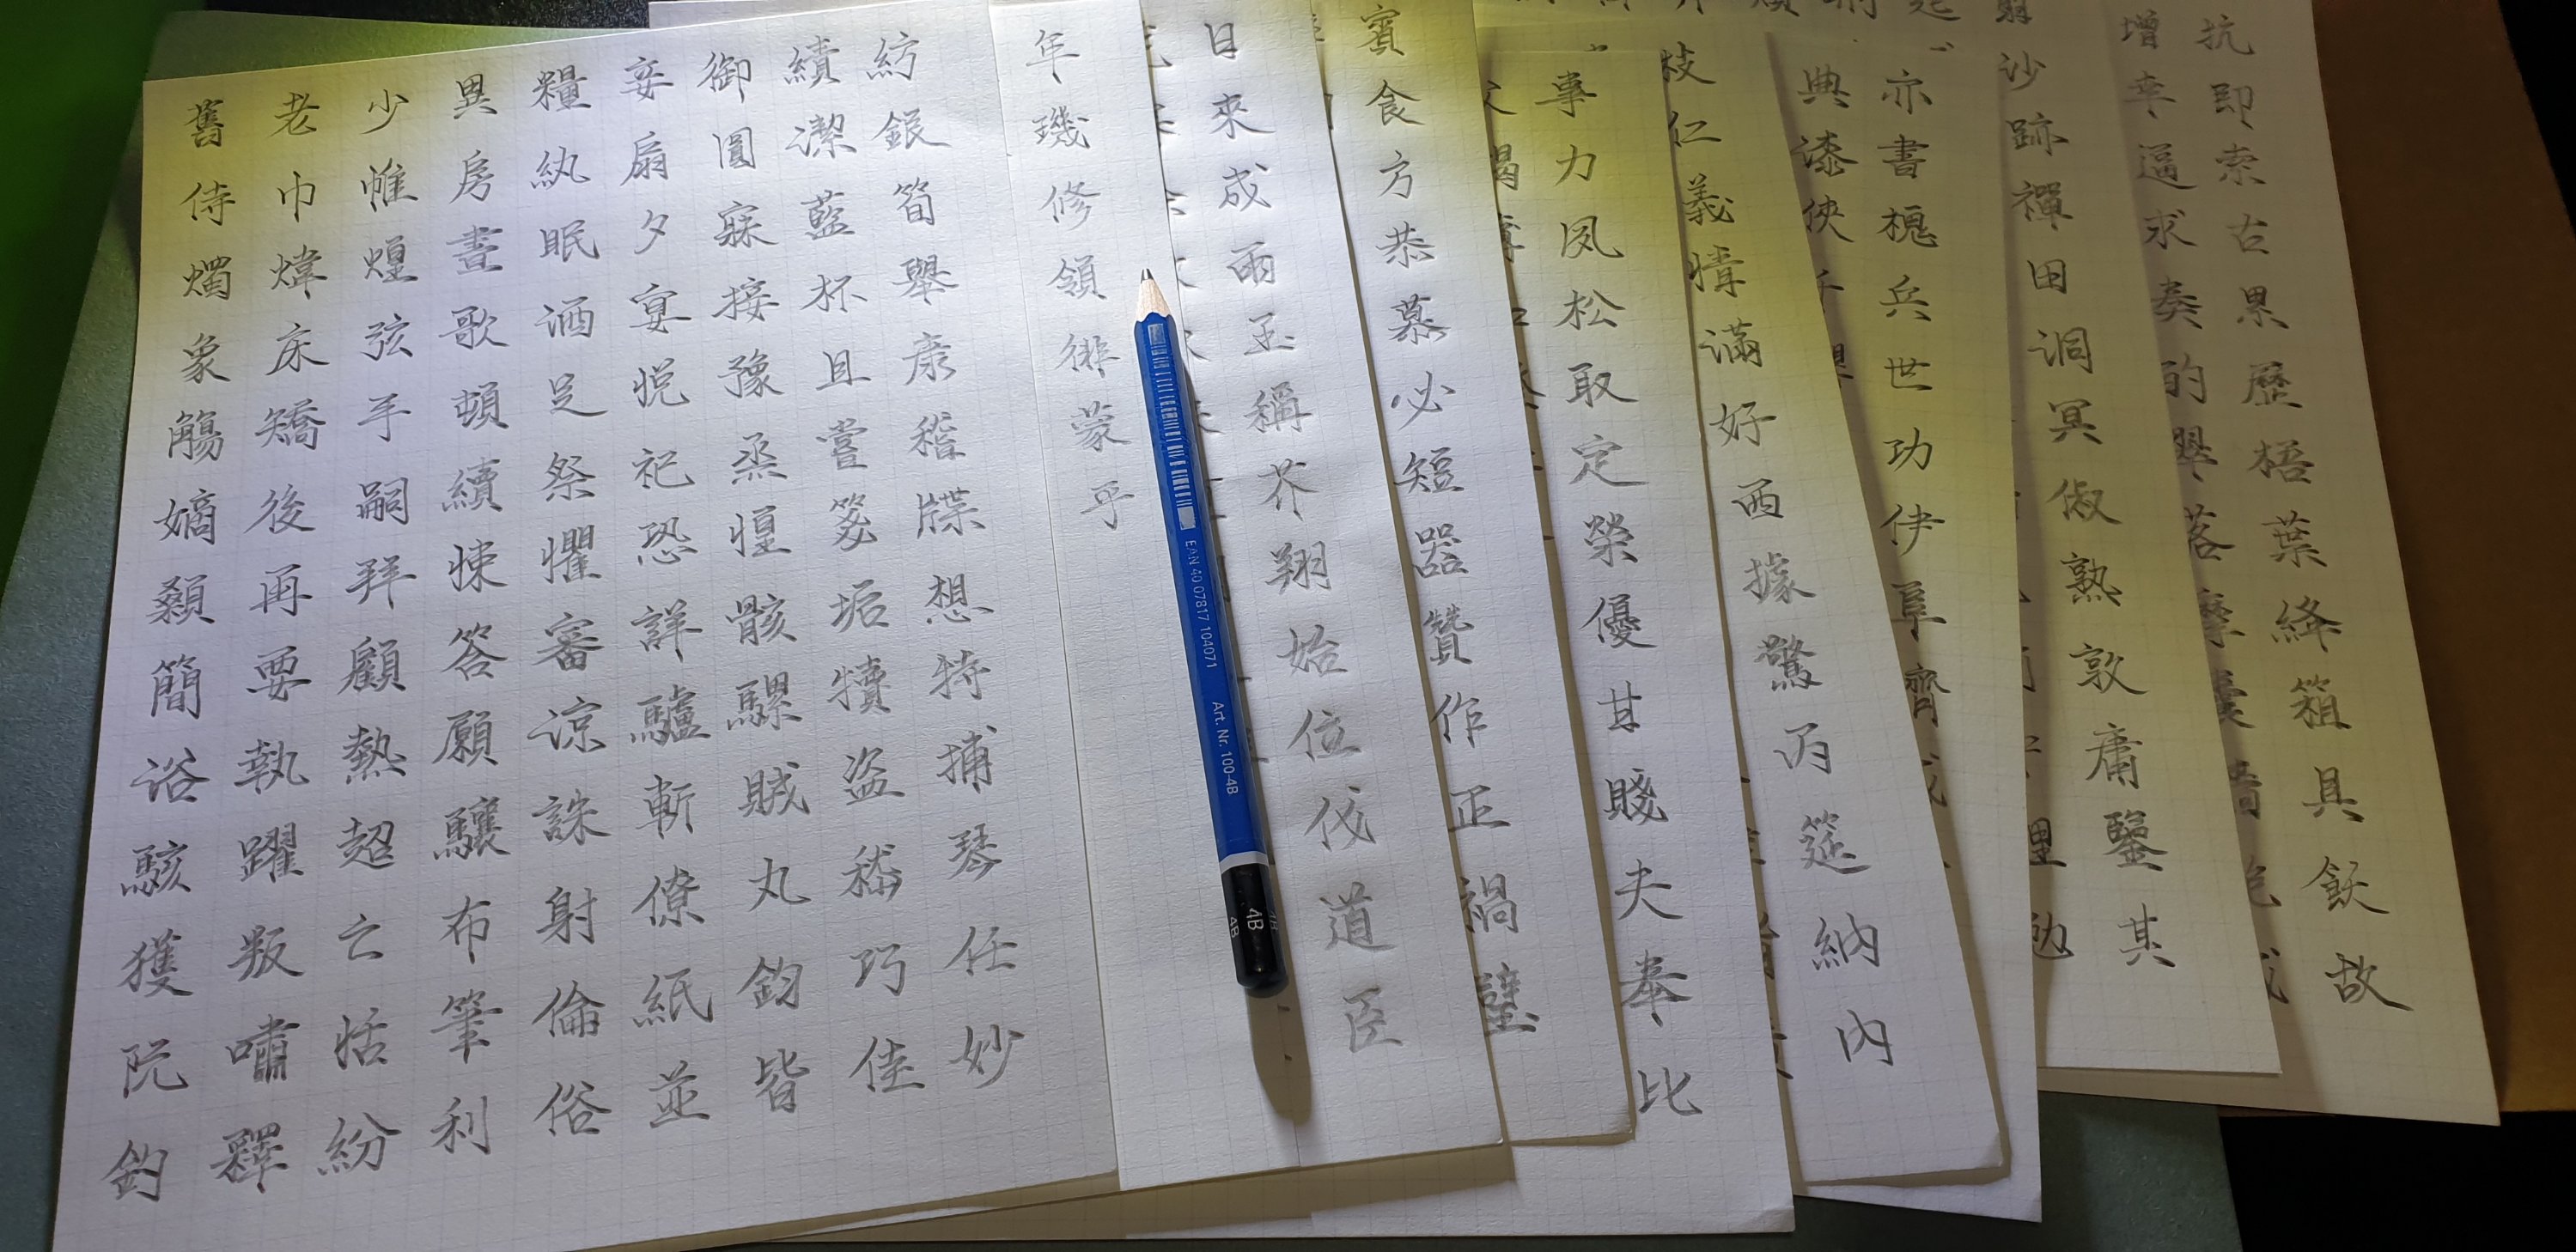 舊老少異糧妾御績紡
侍巾帷房紈扇圓潔銀
燭煒煌晝眠夕寐藍筍
象床弦歌酒宴接杯舉
觴矯手頓足悅豫且康
嫡後嗣續祭祀烝嘗稽
顙再拜悚懼恐惶箋牒
簡要顧答審詳骸垢想
浴執熱願涼驢騾犢特
駭躍超驤誅斬賊盜捕
獲叛亡布射僚丸嵇琴
阮嘯恬筆倫紙鈞巧任
釣釋紛利俗並皆佳妙
年璣修領徘蒙乎
日來成雨玉稱芥翔始位伐道臣
賓食方恭慕必短器讚作正禍璧
事力夙松取定榮優甚賤夫奉比
枝仁義情滿好西據驚丙筵納內
典漆俠
亦書槐兵世功伊阜齊
沙跡禪田洞冥俶熟敦庸鑒其
增幸逼求奏的翠落摩囊
抗即索古累歷梧葉絳箱具飫故
EAN 40 07817 104071
Art. Nr. 100-4B
4B
4B